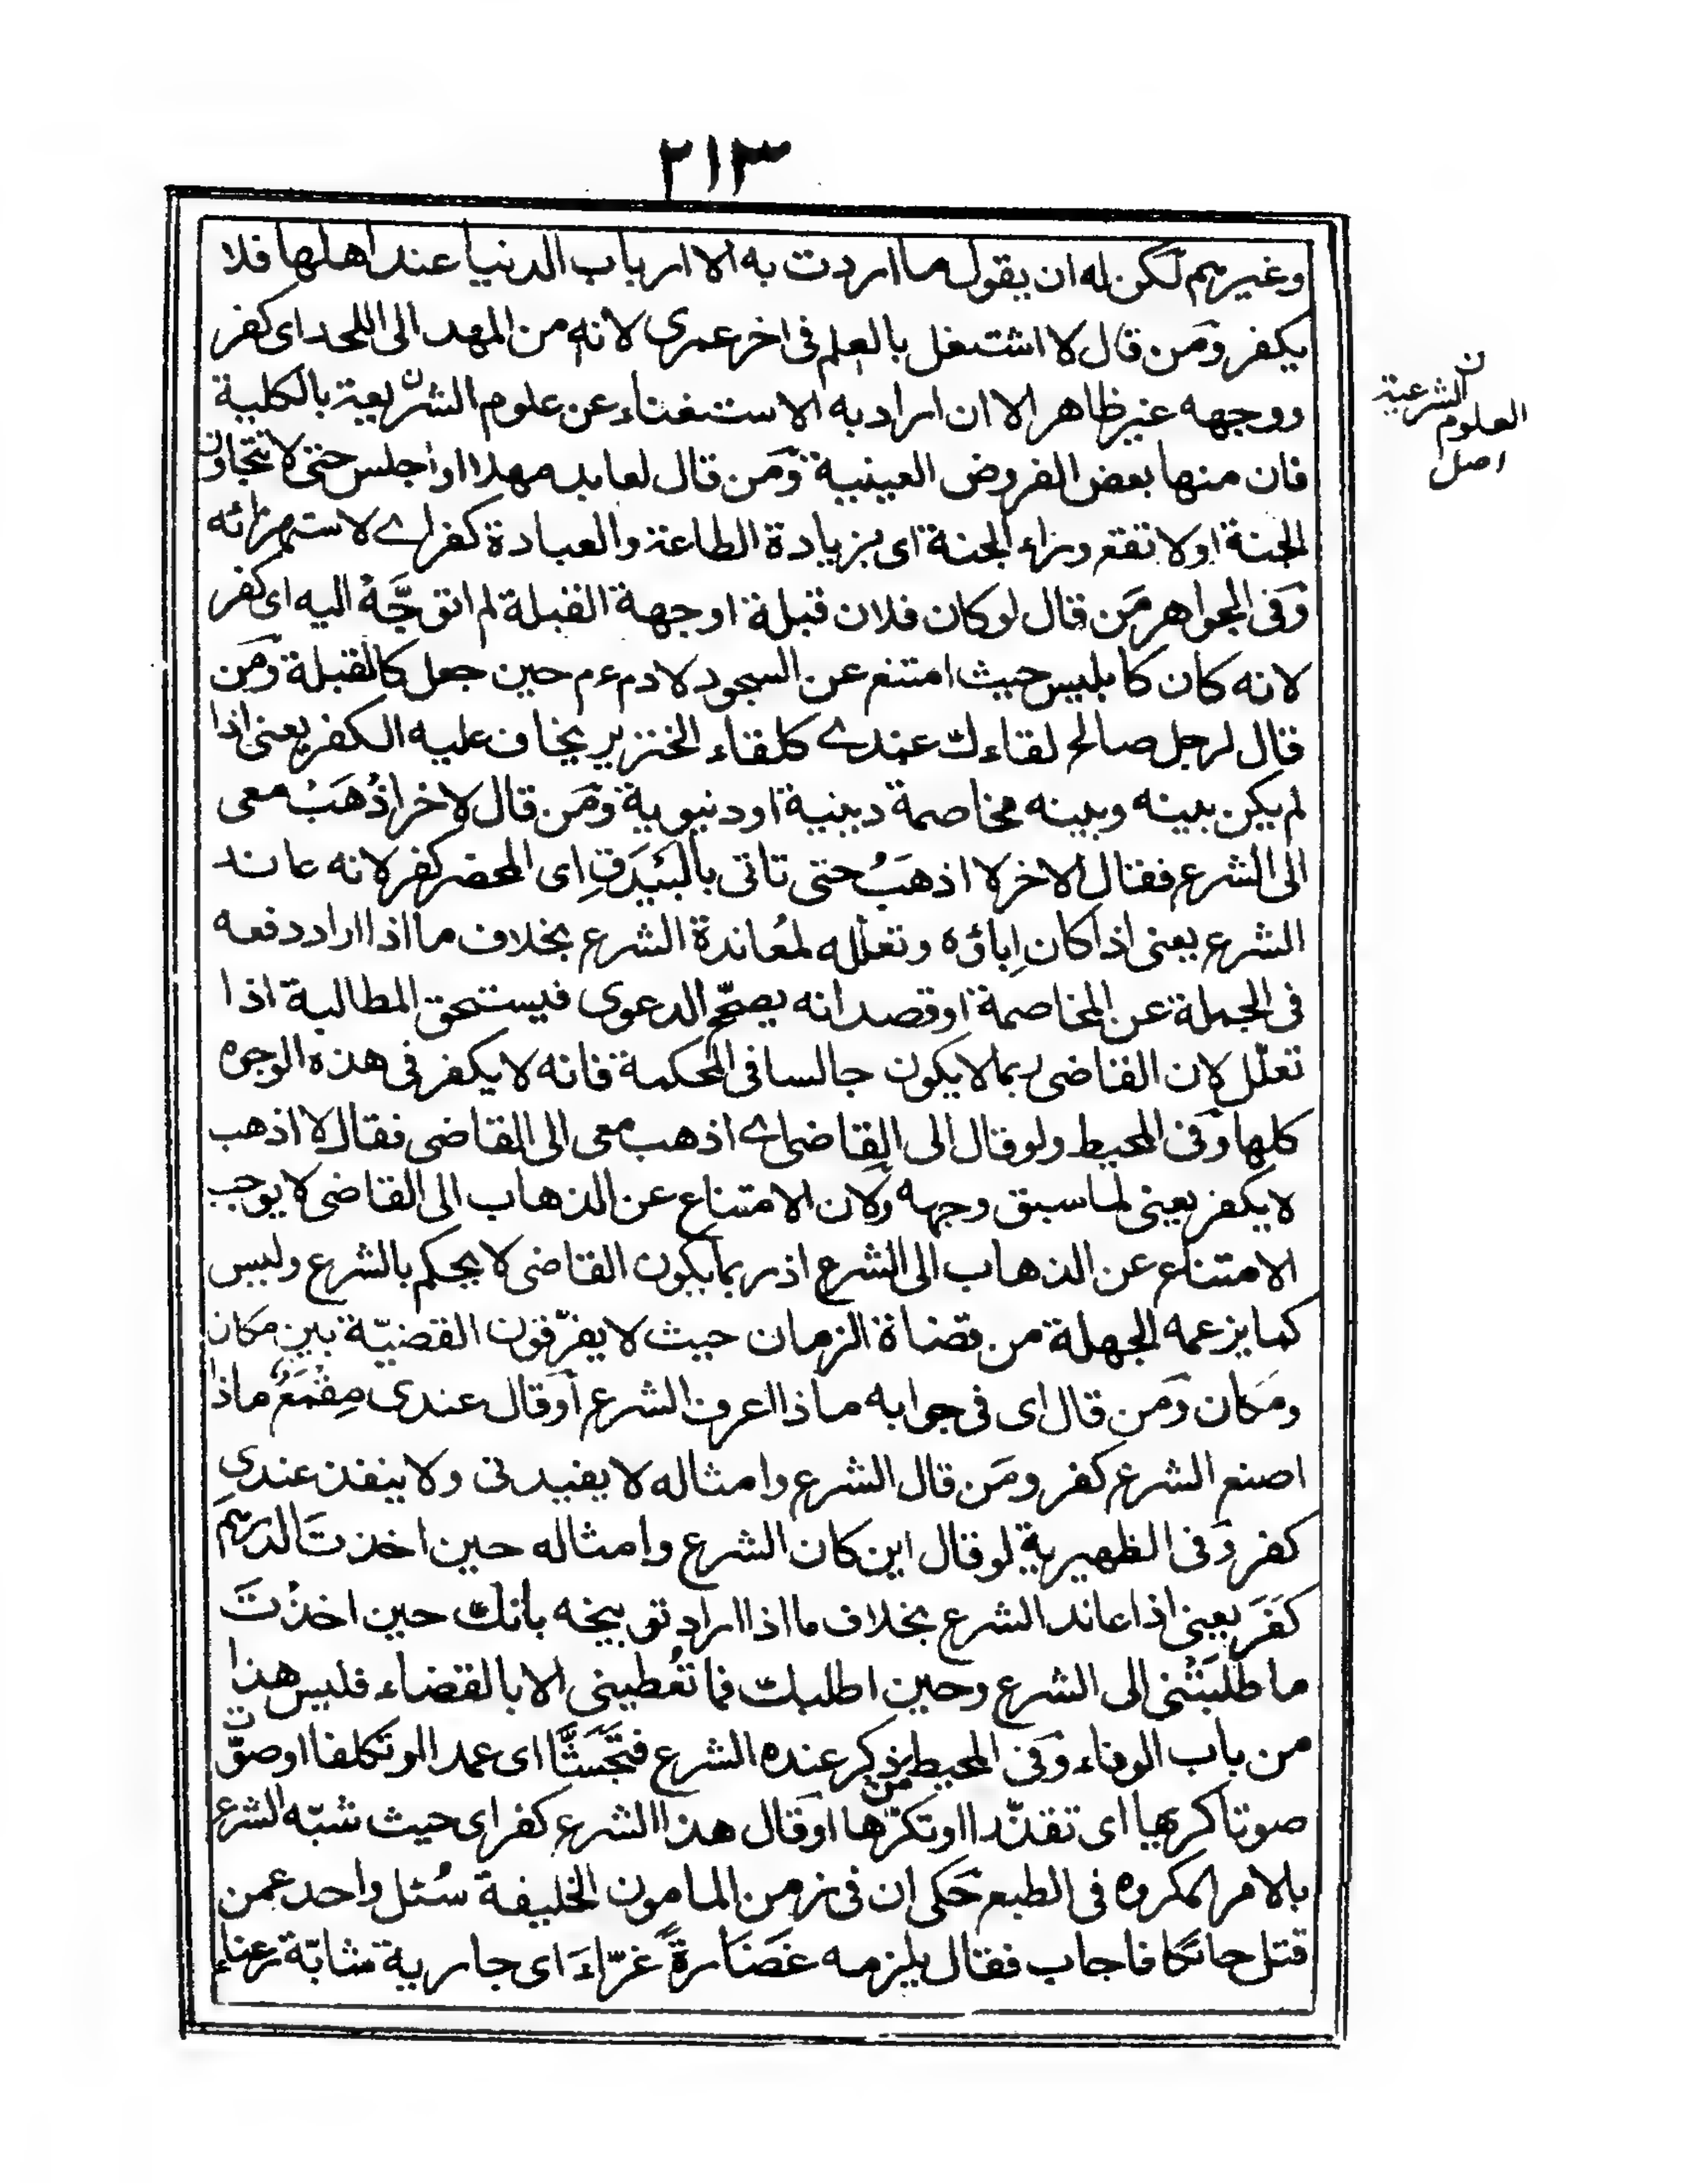 ٢١٣
وغيرهم لكن له ان يقول ما اردت به الا ارباب الدنيا عند اهلها فلا
يكفر ومَن قال لا اشتغل بالعلم فى اخر عمرى لانه من المهد الى اللحد اى كفر
ووجهه غير ظاهر الا ان اراد به الاستغناء عن علوم الشريعة بالكلية
ن
العلوم الشرعية
اصل
فان منها بعض الفروض العينية ومَن قال لعابد مهلا او اجلس حتى لا تتجاوز
الجنة او لا تقع وراء الجنة اى بزيادة الطاعة والعبادة كفر اے لاستهزائه
وَفى الجواهر مَن قال لو كان فلان قبلة او جهة القبلة لم اتوجَّهْ اليه اى كفر
لانه كان كابليس حيث امتنع عن السجود لادم ءم حين جعل كالقبلة ومَن
قال لرجل صالح لقاءك عندے كلقاء الخنزير يخاف عليه الكفر يعنى اذا
لم يكن بينه وبينه مخاصمة دينية او دنيوية ومَن قال لاخر اذْهَبْ معى
الى الشرع فقال الاخر لا اذهبُ حتى تاتى بالبَيْدَقِ اى المحضر كفر لانه عاند
الشرع يعنى اذا كان اِباؤه وتعلّله لمُعاندة الشرع بخلاف ما اذا اراد دفعه
فى الجملة عن المخاصمة او قصد انه يصحّح الدعوى فيستحق المطالبة اذا
تعلّل لان القاضى ربما لا يكون جالسا فى المحكمة فانه لا يكفر فى هذه الوجوه
كلها وَفى المحيط ولو قال الى القاضى اے اذهب معى الى القاضى فقال لا اذهب
لا يكفر يعنى لما سبق وجهه ولان الامتناع عن الذهاب الى القاضى لا يوجب
الامتناع عن الذهاب الى الشرع اذ ربما يكون القاضى لا يحكم بالشرع وليس
كما يزعمه الجهلة من قضاة الزمان حيث لا يفرّقون القضيّة بين مكان
ومَكان ومَن قال اى فى جوابه ماذا اعرف الشرع اَوقال عندى مِقْمَعٌ ماذا
اصنع الشرع كفر ومَن قال الشرع وامثاله لا يفيدنى ولا ينفذ عندى
كفر وَفى الظهيرية لو قال اين كان الشرع وامثاله حين اخذتَ الدرهم
كَفَرَ يعنى اذا عاند الشرع بخلاف ما اذا اراد توبيخه بانك حين اخذْتَ
ما طَلَبْتَنْى الى الشرع وحين اطلبك فما تُعْطينى الا بالقضاء فليس هذا
من باب الوفاء وَفى المحيط من ذكر عنده الشرع فتَجَشَّأَ اى عمدا او تكلفا اوصوّت
صوتا كريها اى تقذّرا او تكرّها اَوقال هذا الشرع كفر اى حيث شبّه الشرع
بالامر المكروه فى الطبع حَكى ان فى زمن المامون الخليفة سُئل واحد عمن
قتل حائكا فاجاب فقال يلزمه غَضَارةً غرّاءَ اى جارية شابّة رعناء